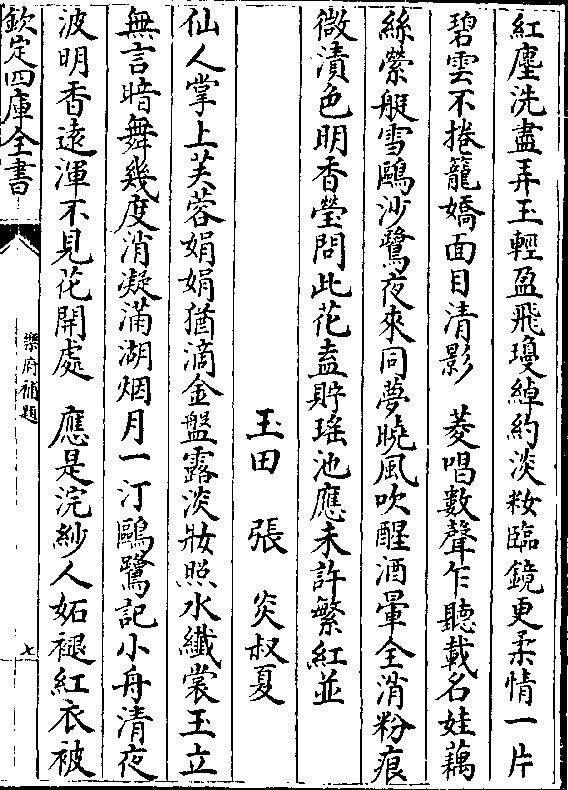 紅塵洗盡弄玉輕盈飛瓊綽約淡妝臨鏡更柔情一片
碧雲不捲籠嬌面目清影　菱唱數聲乍聽載名娃藕
絲縈艇雪鷗沙鷺夜來同夢曉風吹醒酒暈全消粉痕
微漬色明香瑩問此花盍貯瑤池應未許繁紅並
玉田　張　炎叔夏
仙人掌上芙蓉娟娟猶滴金盤露淡妝照水纖裳玉立
無言暗舞幾度消凝滿湖烟月一汀鷗鷺記小舟清夜
波明香遠渾不見花開處　應是浣紗人妬褪紅衣被
欽定四庫全書
樂府補題
七